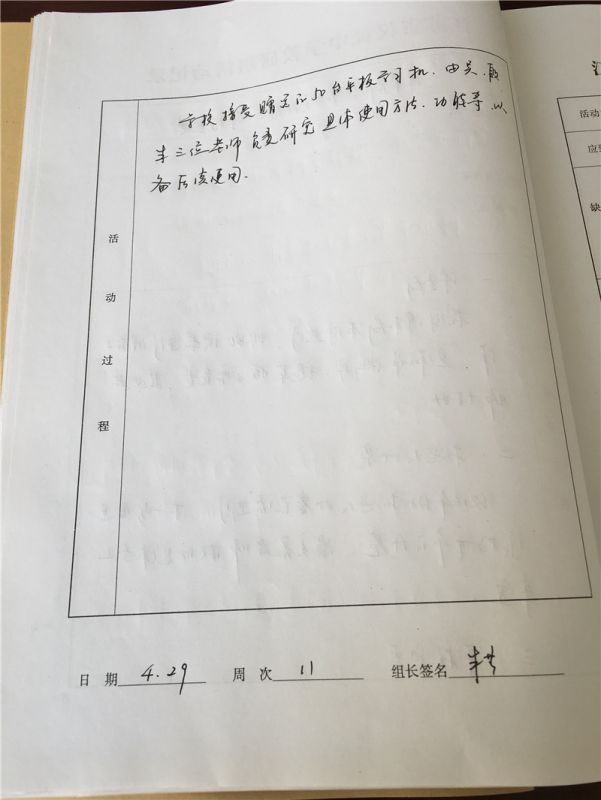 学校接受赠送的50台平板学习机.由吴.顾
朱三位老师负责研究具体使用方法.功能等.以
备后续使用.
活动过程
日 期 4.29 周 次 11 组长签名
活动
应到
缺